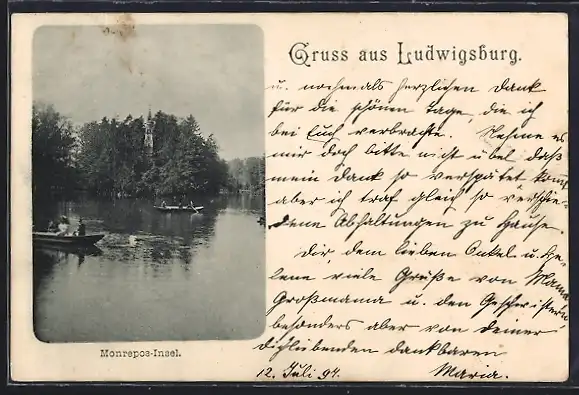 Gruss aus Ludwigsburg.
u. nochmals herzlichen Dank
für die schönen Tage, die ich
bei Euch verbrachte. Nehme es
mir doch bitte nicht übel daß
mein Dank so verspätet kommt
aber ich traf gleich so verschie-
dene Abhaltungen zu Hause.
Dir, dem lieben Onkel u. He-
lene viele Grüße von Mama
Großmama u. den Geschwistern
besonders aber von deiner
dichliebenden dankbaren
12. Juli 97. Maria.
Monrepos-Insel.